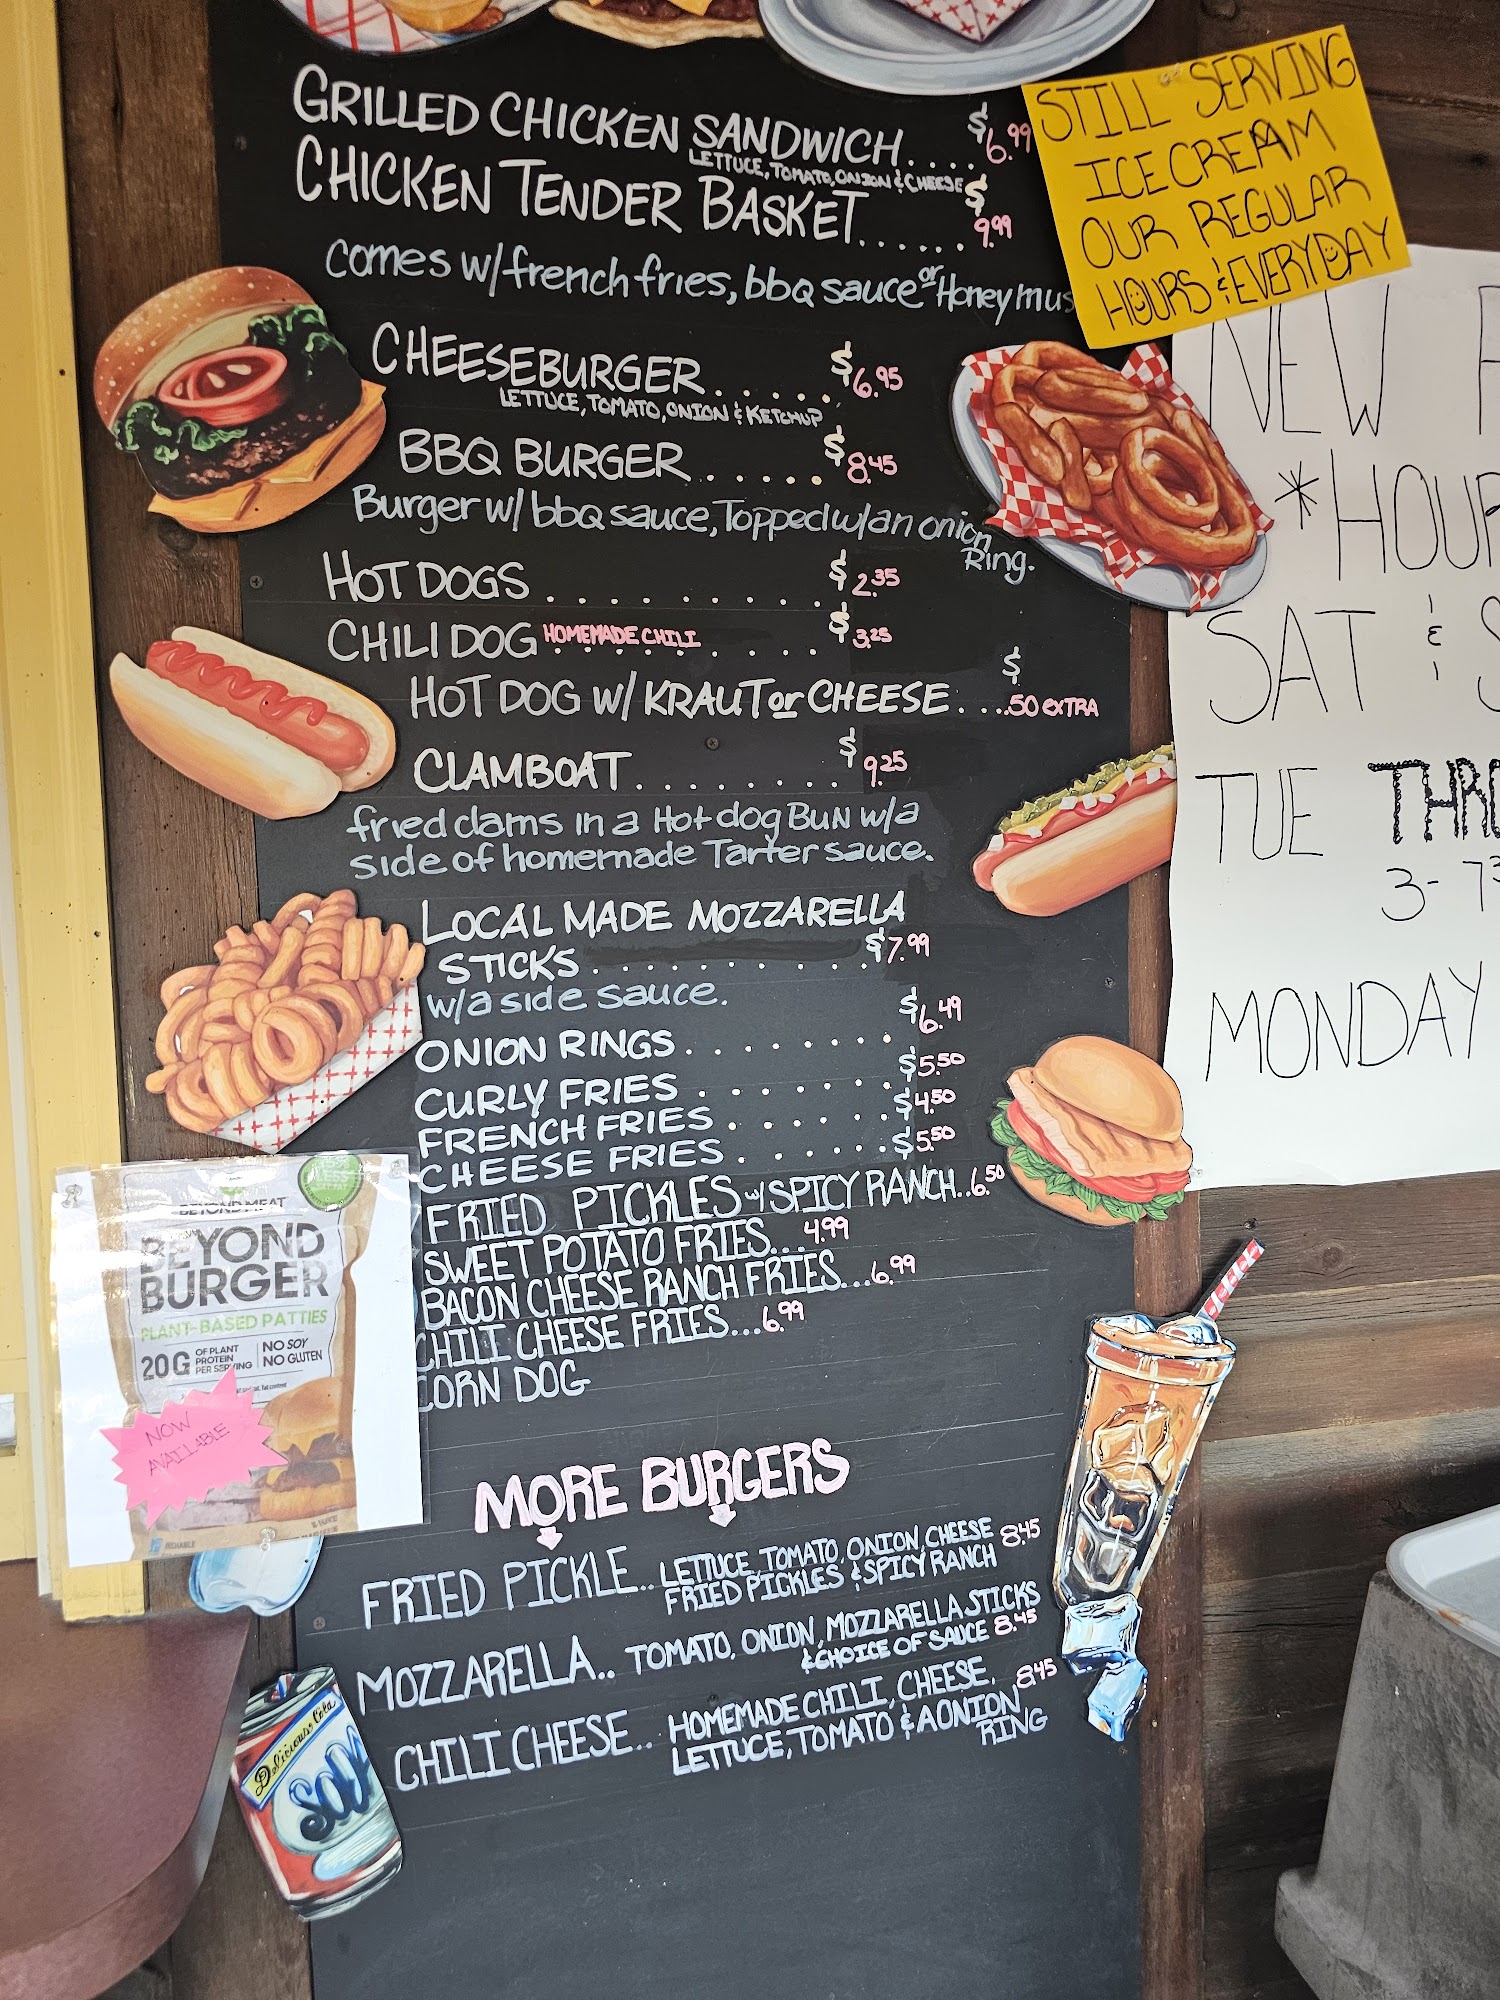 GRILLED CHICKEN SANDWICH.... $6.99
LETTUCE, TOMATO, ONION & CHEESE
CHICKEN TENDER BASKET...... $9.99
comes w/french fries, bbq sauce or Honey mus
CHEESEBURGER...... $6.95
LETTUCE, TOMATO, ONION & KETCHUP
BBQ BURGER...... $8.45
Burger w/ bbq sauce, Topped w/an onion
Ring.
HOT DOGS........ $2.35
CHILI DOG HOMEMADE CHILI.... $3.25
HOT DOG w/ KRAUT or CHEESE.... $.50 EXTRA
CLAMBOAT........ $9.25
fried clams in a Hot dog BUN w/a
side of homemade Tarter sauce.
LOCAL MADE MOZZARELLA
STICKS.......... $7.99
w/a side sauce.
ONION RINGS........ $6.49
CURLY FRIES....... $5.50
FRENCH FRIES....... $4.50
CHEESE FRIES....... $5.50
FRIED PICKLES w/ SPICY RANCH..6.50
SWEET POTATO FRIES... 4.99
BACON CHEESE RANCH FRIES...6.99
CHILI CHEESE FRIES...6.99
CORN DOG
MORE BURGERS
FRIED PICKLE.. LETTUCE, TOMATO, ONION, CHEESE 8.45
FRIED PICKLES & SPICY RANCH
MOZZARELLA.. TOMATO, ONION, MOZZARELLA STICKS
& CHOICE OF SAUCE 8.45
CHILI CHEESE.. HOMEMADE CHILI, CHEESE, 8.45
LETTUCE, TOMATO & A ONION
RING
STILL SERVING
ICE CREAM
OUR REGULAR
HOURS & EVERYDAY
NEW
*HOUR
SAT & S
TUE THR
3-7
MONDAY
BEYOND MEAT
BEYOND
BURGER
PLANT-BASED PATTIES
20G OF PLANT PROTEIN PER SERVING
NO SOY
NO GLUTEN
NOW
AVAILABLE
Delicious Cold
SODA